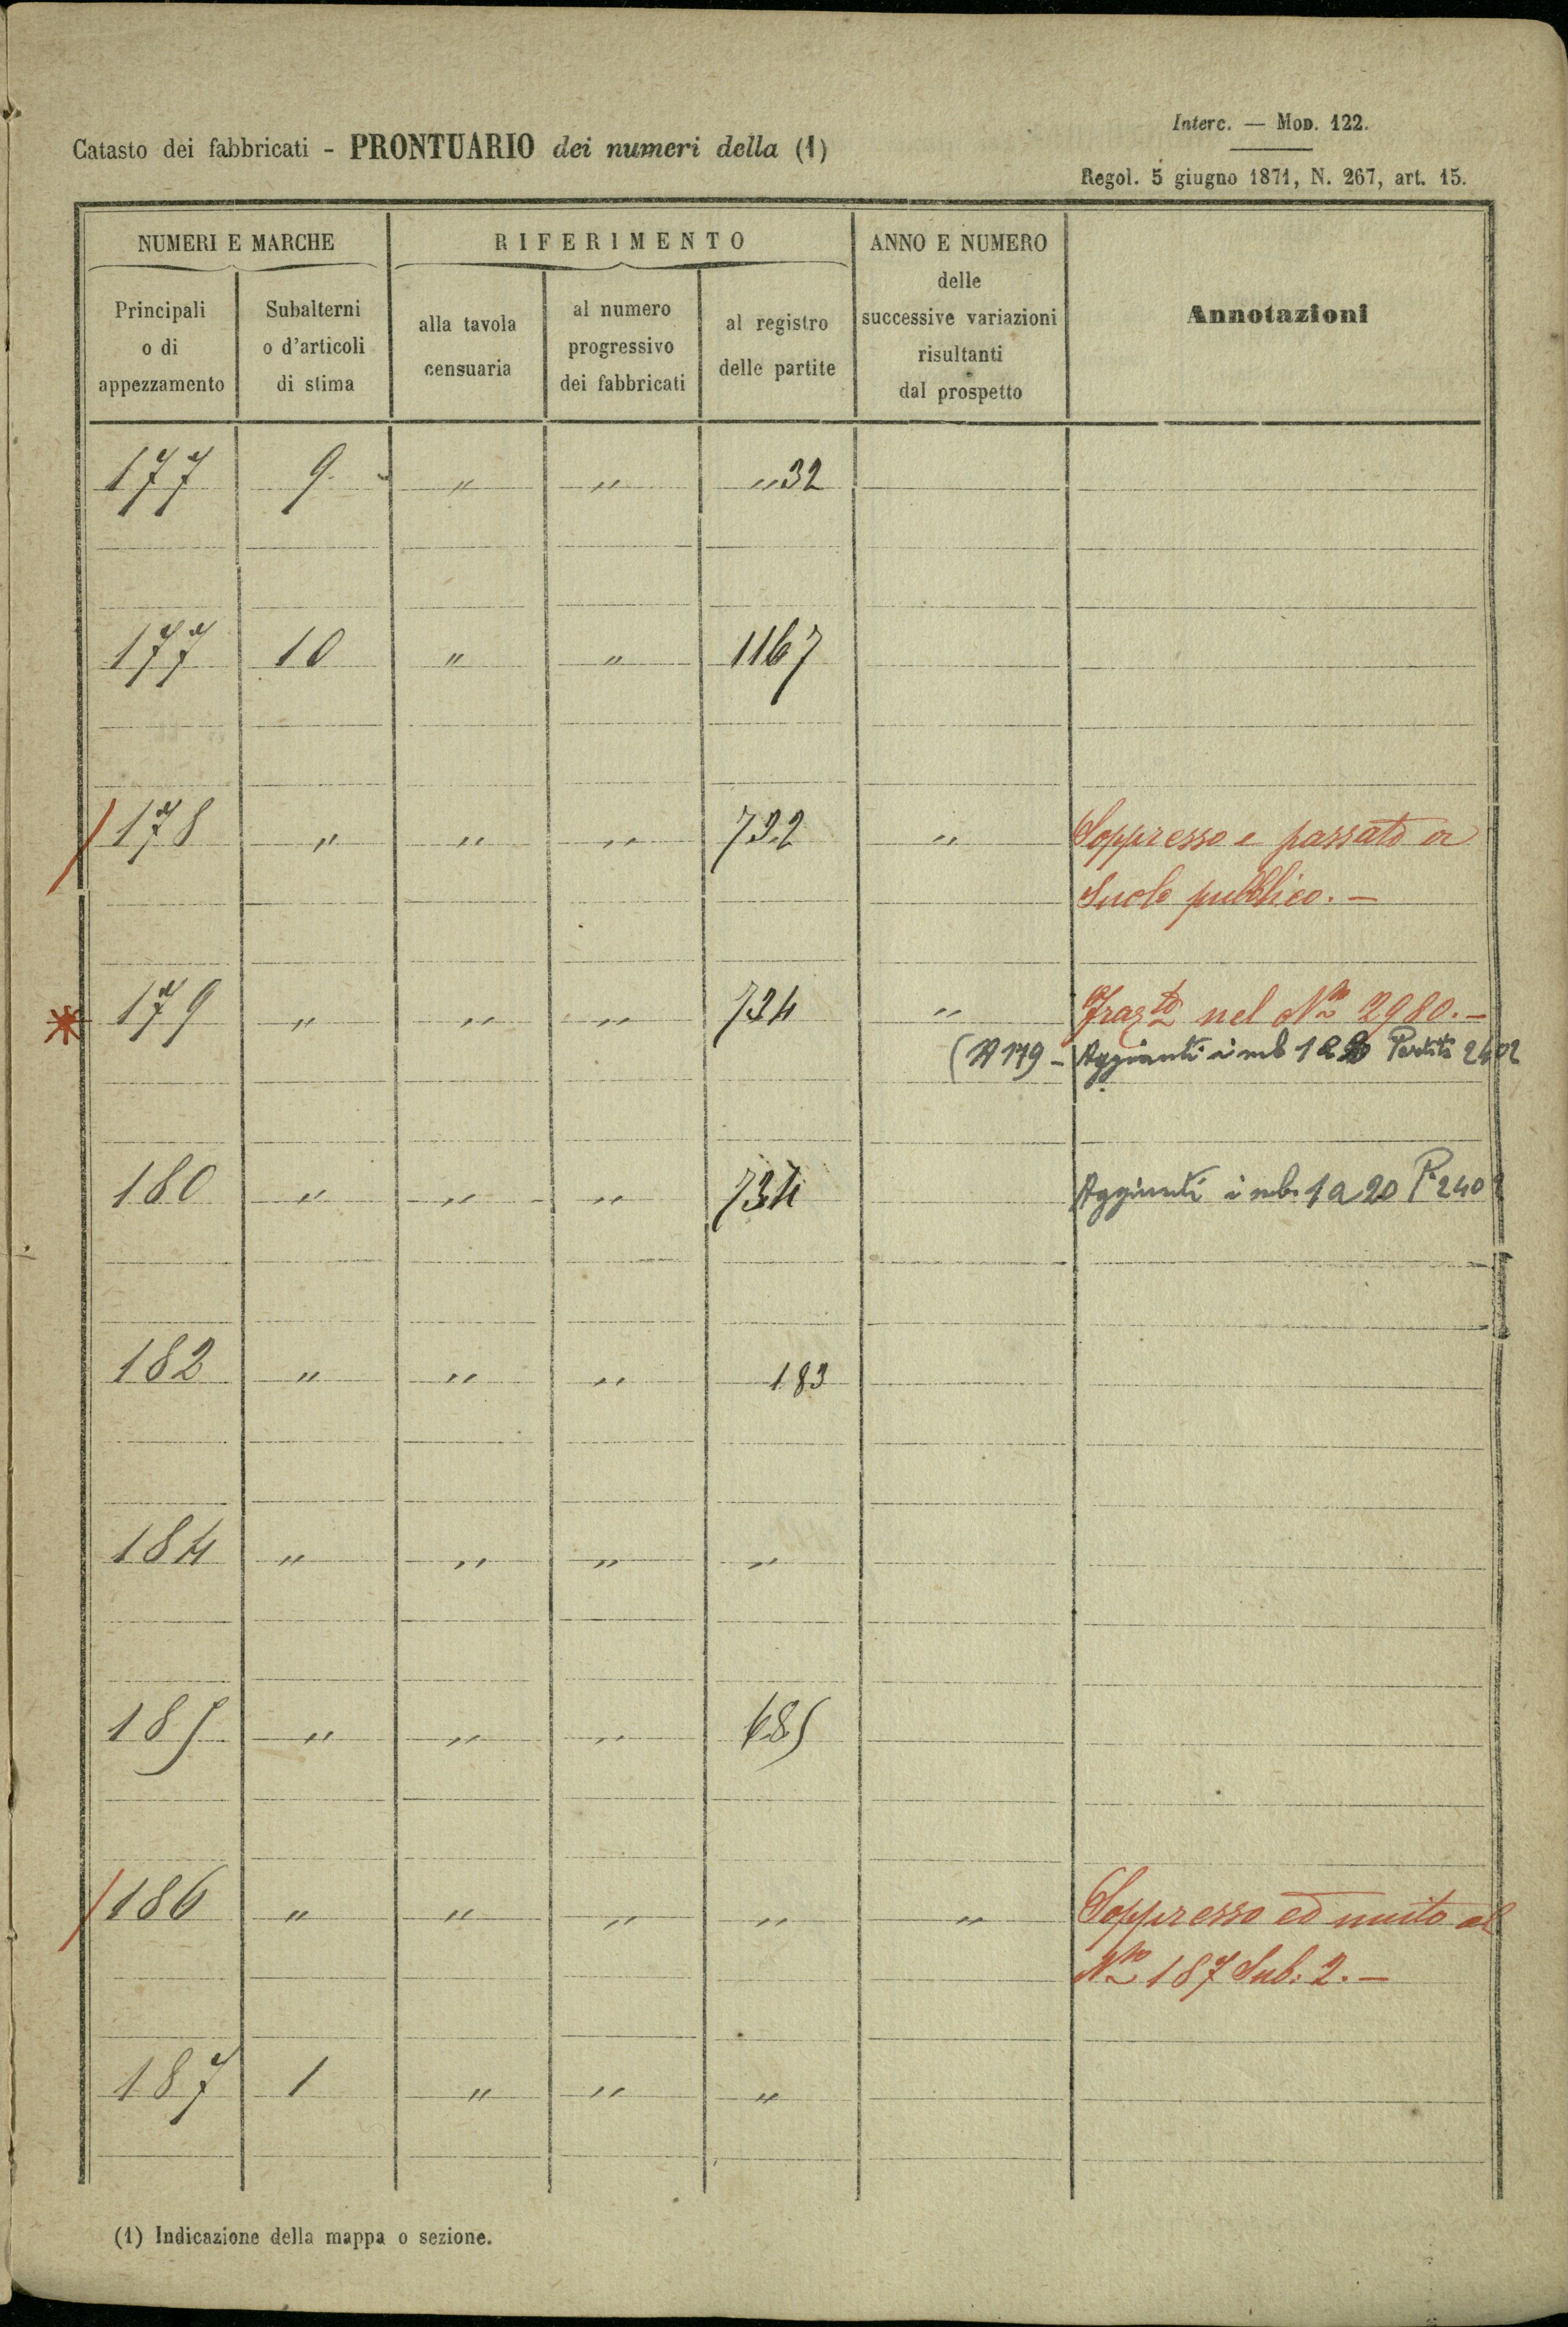 Interc. — Mod. 122.
Catasto dei fabbricati - PRONTUARIO dei numeri della (1)
Regol. 5 giugno 1871, N. 267, art. 15.
NUMERI E MARCHE
RIFERIMENTO
ANNO E NUMERO
delle
successive variazioni
risultanti
dal prospetto
Annotazioni
Principali
o di
appezzamento
Subalterni
o d'articoli
di stima
alla tavola
censuaria
al numero
progressivo
dei fabbricati
al registro
delle partite
177 9 " " "32
177 10 " " 1167
178 " " " 732 " Soppresso e passato a
Suolo pubblico. -
179 " " " 734 " nel No 2980. -
179 - Aggiunti i sub 1 a 20 Partita 2402
180 " " " 734 Aggiunti i sub. 1 a 20 P. 2402
182 " " " 183
184 " " " "
185 " " " 685
186 " " " " " Soppresso ed unito al
No 187 Sub: 2. -
187 1 " " "
(1) Indicazione della mappa o sezione.